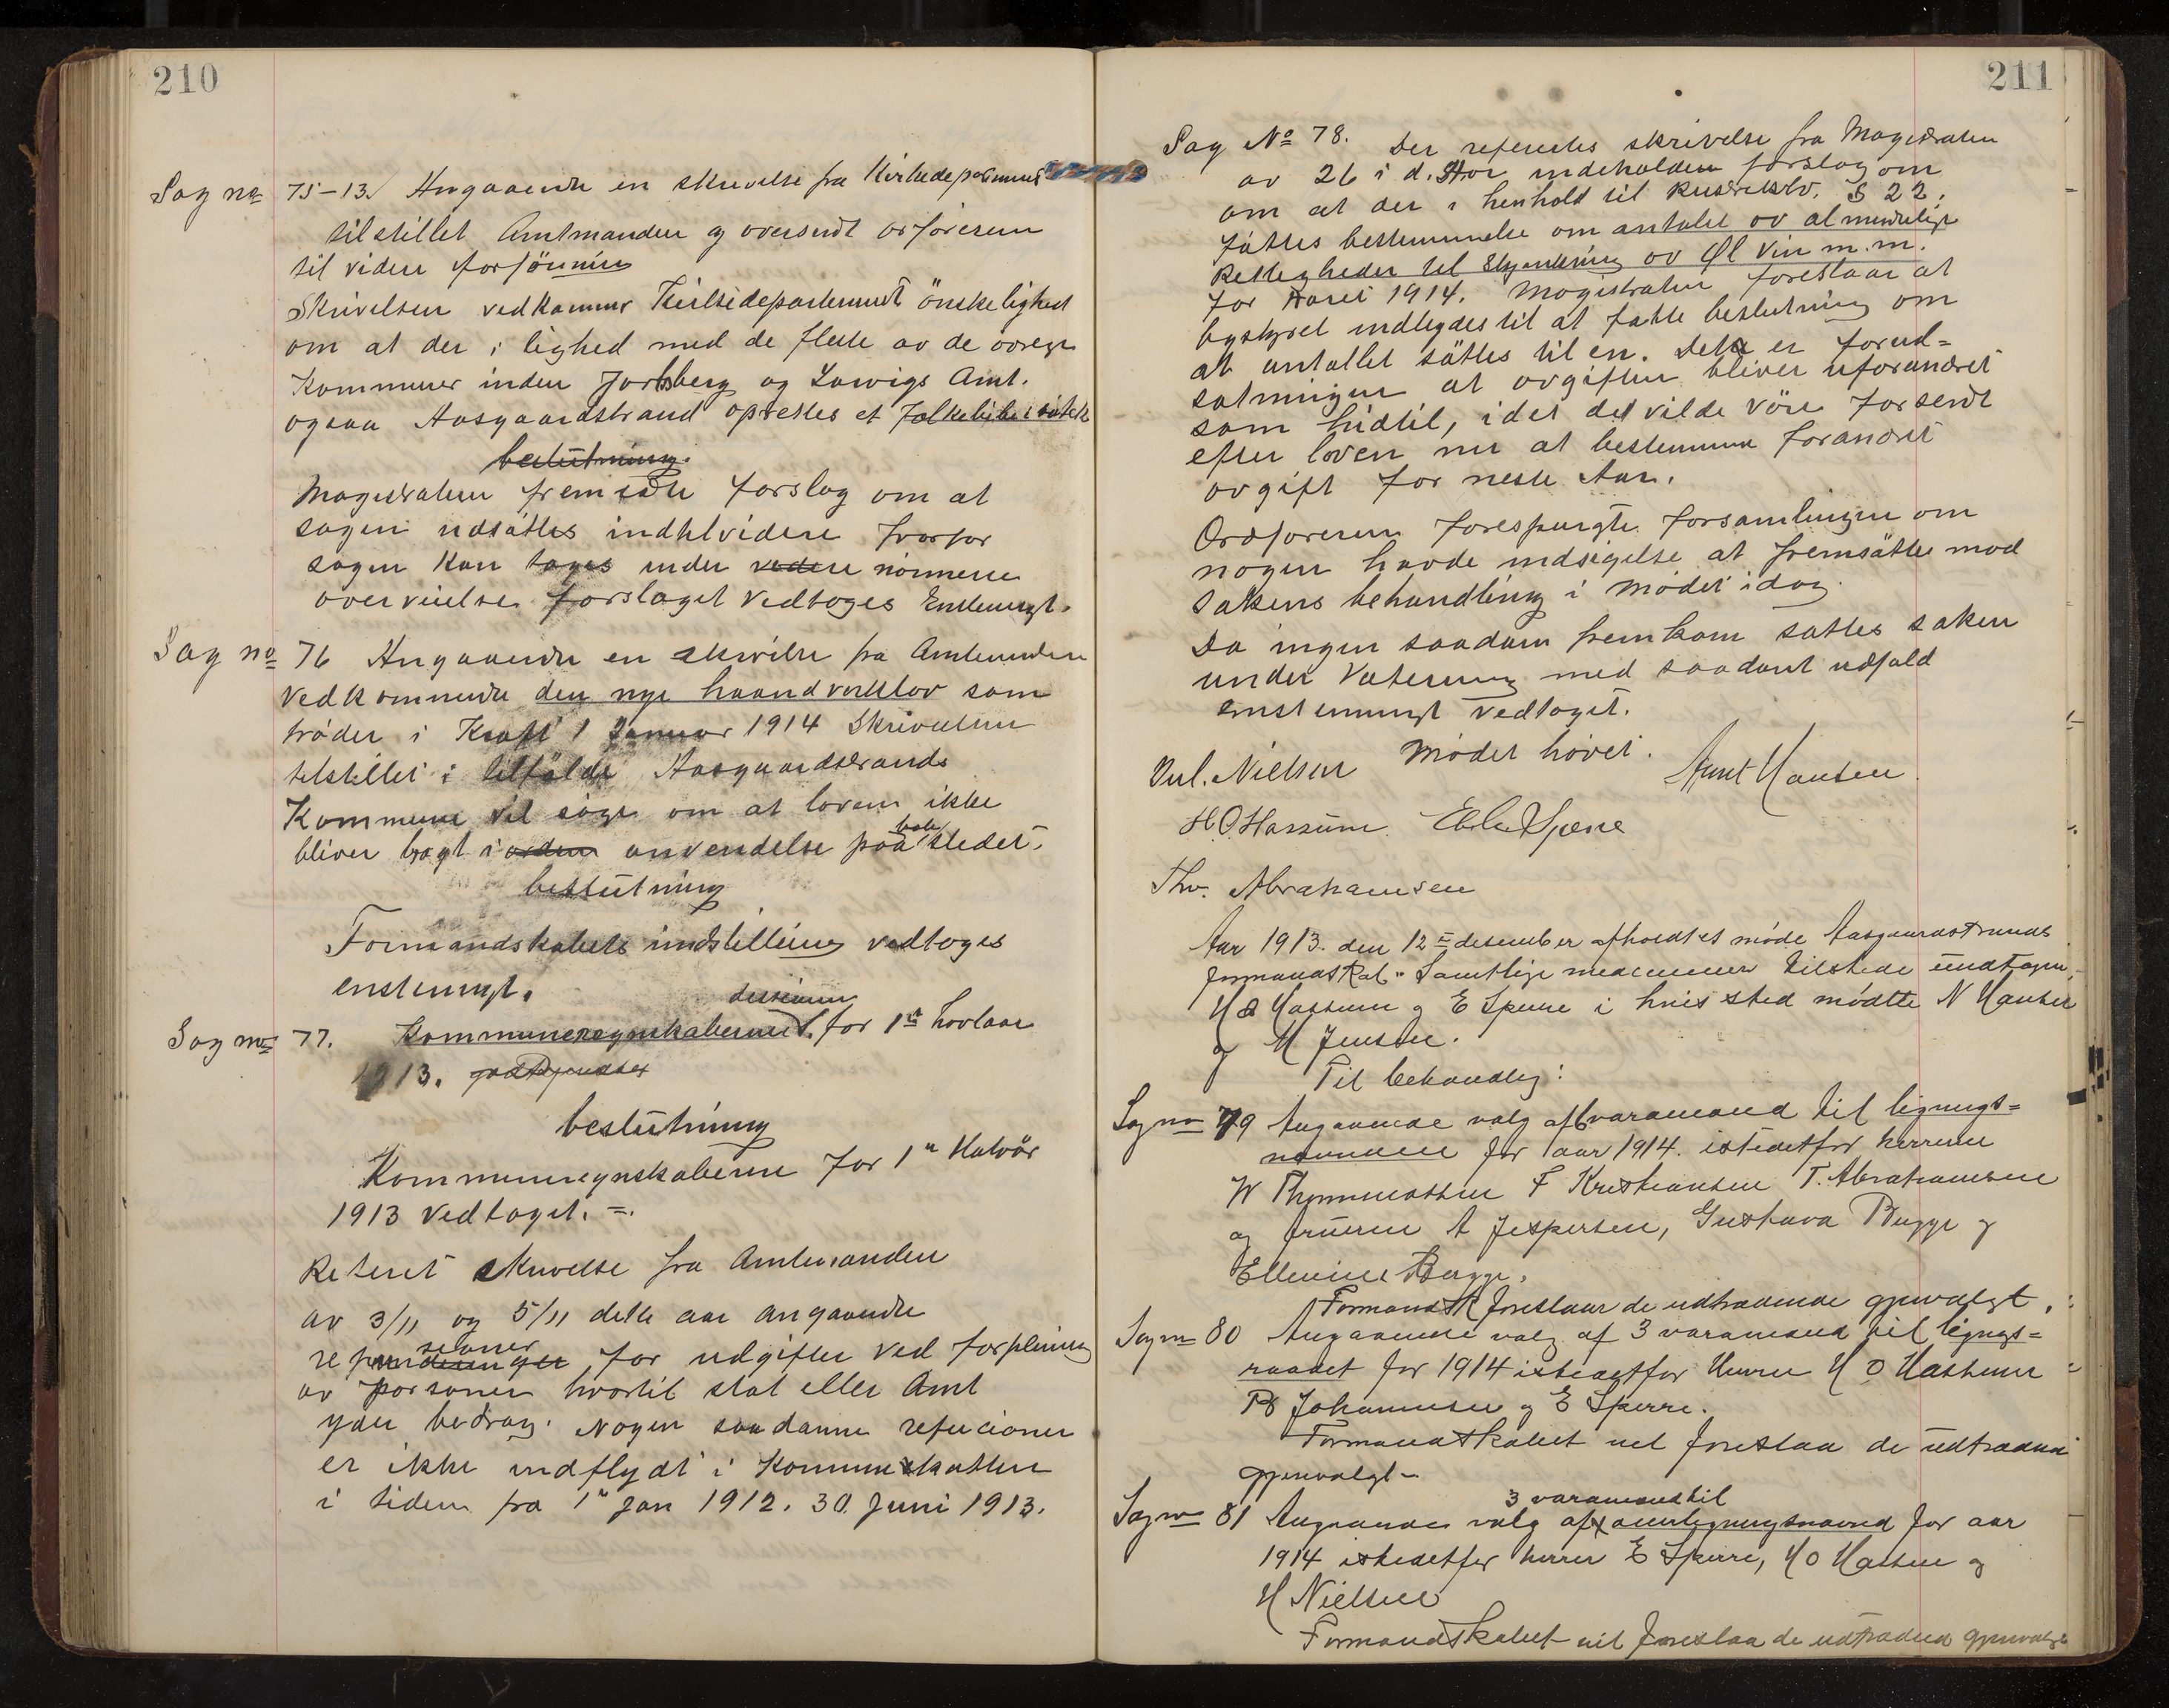 210
Sag no 75-13 Angaaende en skrivelse fra Kirkedepartementet
tilstillet Amtmanden og oversendt ordføreren
til videre forføining
Skrivelsen vedkommer Kirkedepartementet önskelighed
om at der i lighed med de fleste av de övrige
Kommuner inden Jarlsberg og Larvigs Amt.
ogsaa Aasgaardstrand oprettes et folkebibliotek
beslutning.
Magistraten fremsatte forslag om at
sagen udsättes indtilvidere hvorfor
sagen kan tages under videre närmere
overveielse. forslaget vedtoges Enstemigt.
Sag no 76 Angaaende en skrivelse fra Amtmanden
Vedkommende den nye haandverklov som
träder i Kraft 1 Januar 1914 Skrivelsen
tilstillet i tilfälde Aasgaardstrands
Kommune vil söge om at loven ikke
bliver bragt i orden anvendelse paa stedet.
beslutning
Formandskabets indstilling vedtoges
enstemigt.
Sag no 77. Kommuneregnskaberne for 1ste halvaar
1913.
beslutning
Kommuneregnskaberne for 1ste Halvår
1913 Vedtaget. =.
Referet skrivelse fra Amtmanden
av 3/11 og 5/11 dette aar angaaende
for udgifter ved forpleining
av personer hvortil stat eller Amt
yder bedrag. Nogen saadanne refucioner
er ikke indflydt i Kommunekassen
i tiden fra 1ste Jan 1912. 30. Juni 1913.
211
Sag No 78. Der refereertes skrivelse fra Magistraten
av 26 i d. Mor indeholden forslag om
om at der i henhold til § 22.
fattes bestemmelse om antalet av almindelige
Rettigheder til Skjenkning av Øl Vin m.m.
for Aaret 1914. Magistraten foreslaar at
bystyret indbydes til at fatte beslutning om
at antallet sättes til en. Det er forud=
satningen at avgiften bliver uforandret
som hidtil, idet det vilde väre forsendt
efter loven nu at bestemme forandret
avgift for neste Aar.
Ordføreren forespurgte forsamlingen om
nogen havde indsigelse at fremsätte mod
sakens behandling i mødet idag.
Da ingen saadan fremkom sattes saken
under Votering med saadant udfald
enstemmigt vedtaget.
Mödet hävet.
Nielsen Arnt Hansen
H.O. Hassum
Thv. Abrahamsen
Aar 1913. den 12te desember afholdtes møde Aasgaardstrands
formandskab. Samtlige medlemmer tilstede undtagen
H O Hassum og E Sperre i hvis sted mødte N Hansen
og M Jensen.
Til behandlig:
Sag no 79 Angaaende valg af 6 varamænd til lignings=
nævnden for aar 1914. istedetfor herrerne
W Thommassen F Kristiansen T. Abrahamsen
og fruerne A Jespersen, Gustava Bugge og
Ellevine Bugge.
Formandsk foreslaar de udtrædende gjenvalgt.
Sag no 80 Angaaende valg af 3 varamænd til lignigs=
raadet for 1914 istedetfor Herrer H O Hassum
B Johannesen og E Sperre.
Formandskabet vil foreslaa de udtrædend
gjenvalgt-
3 varamænd til
Sag no 81 Angaaende valg af for aar
1914 istedetfor herrer E Sperre, H O Hassum og
H Nielsen
Formandskabet vil foreslaa de udtrædend gjenvalgt